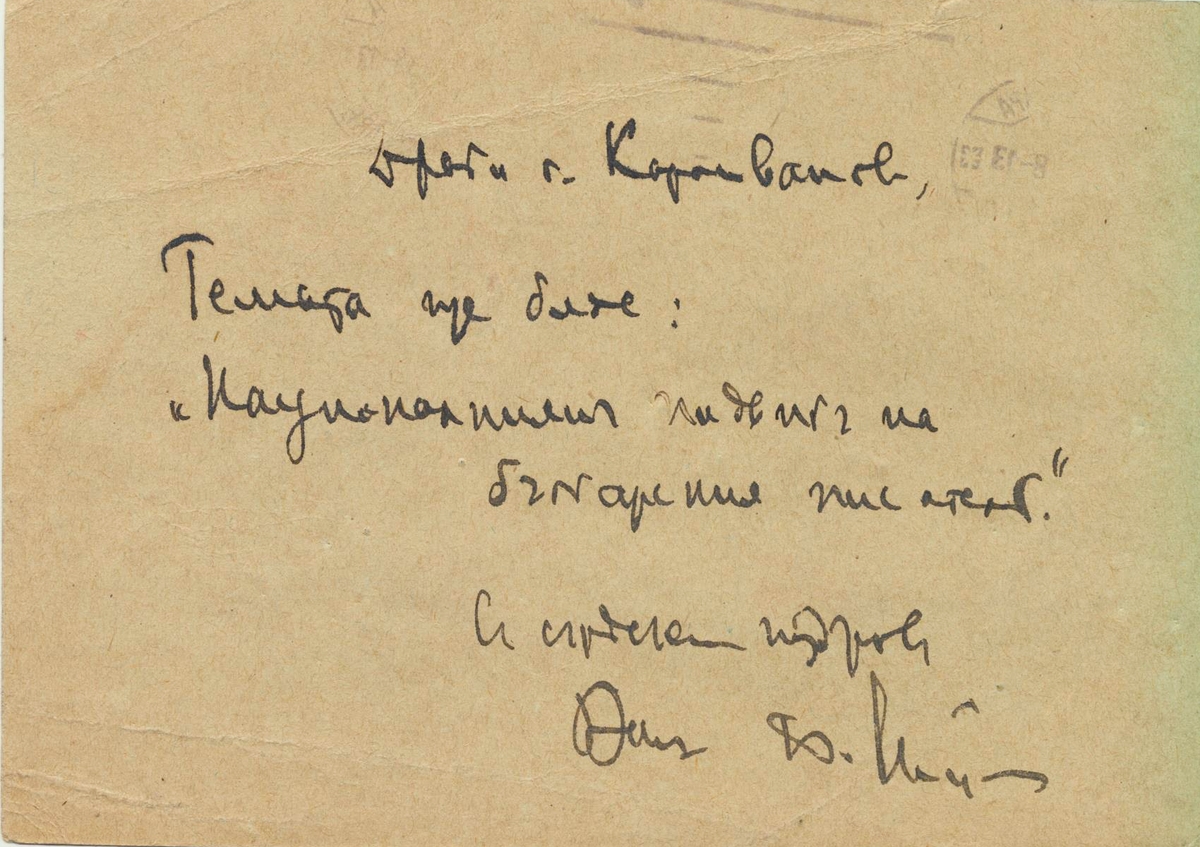 Драги г. Караиванов,
Темата ще бѫде:
„Националниятъ подвигъ на
българския писатель."
Съ сърдеченъ поздравъ
Вашъ Б.